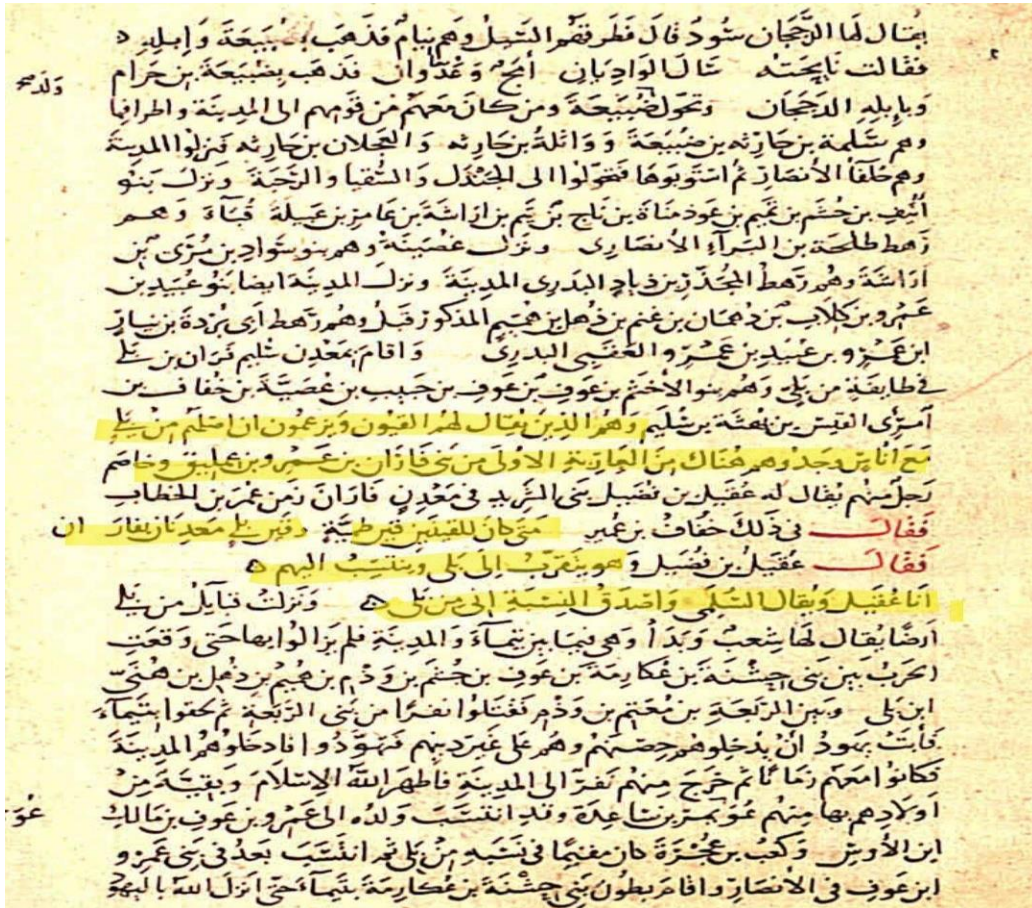 يقال لها الدجحان سود قال فطرقهم السيل وهم نيام فذهب بضبيعة وإبله
فقالت نايحته سال الواديان أمج وغدوان فذهب بضبيعة بن حرام
ولده
وبابله الدجحان وتحول ضبيعة ومن كان معهم من قومهم الى المدينة واطرافها
وهم سلمة بن حارثه بن ضبيعة ووائلة بن حارثه والعجلان بن حارثه فنزلوا المدينة
وهم حلفا الأنصار ثم استوبوها فتحولوا الى الجندل والسقيا والرحبة ونزل بنو
أنيف بن جشم بن تميم بن عوذ مناة بن ناج بن تيم بن اراشة بن عامر بن عبيلة قباء وهم
رهط طلحة بن البراء الأنصاري ونزلت غصينة وهم بنو سواد بن مرى بن
اراشة وهم رهط المجذر بن ذياد البدرى المدينة ونزل المدينة ايضا بنو عبيد بن
عمرو بن كلاب بن دهمان بن غنم بن ذهل بن هميم المذكور قبل وهم رهط ابى بردة بن نيار
ابن عمرو بن عبيد بن عمرو العقبى البدرى واقام بمعدن سليم فران بن بلى
في طايفة من بلى وهم بنو الأخثم بن عوف بن عوف بن حبيب بن عصية بن خفاف بن
امرئ القيس بن بهثة بن سليم وهم الذين يقال لهم القيون ويزعمون ان اصلهم من بلى
مع اناس وجدوهم هناك من العاربة الأولى من بنى فاران بن عمرو بن عمليق وخاصم
رجل منهم يقال له عقيل بن فضيل بنى الشريد في معدن فاران زمن عمر بن الخطاب
فقال في ذلك خفاف بن عمير متى كان للقينين قين طمية وقين بلى معدنان بفاران
فقال عقيل بن فضيل وهو يتقرب الى بلى وينتسب اليهم
أنا عقيل ويقال السلمى واصدق النسبة إنى من بلى ونزلت قبايل من بلى
ارضا يقال لها شغب وبدا وهي فيما بين تيماء والمدينة فلم يزالوا بها حتى وقعت
الحرب بين بنى حشنة بن عكارمة بن عوف بن جشم بن ودم بن هميم بن ذهل بن هنى
ابن بلى وبين الربعة بن معتم بن ودم فقتلوا نفرا من بنى الربعة ثم لحقوا بتيماء
فأبت يهود ان يدخلوهم حصنهم وهم على غير دينهم فتهودوا فادخلوهم المدينة
فكانوا معهم زمانا ثم خرج منهم نفر الى المدينة فاظهر الله الإسلام وبقية من
اولادهم بها منهم عويم بن ساعدة وقد انتسب ولده الى عمرو بن عوف بن مالك
ابن الأوس وكعب بن عجرة كان مقيما في نسبه من بلى ثم انتسب بعد في بنى عمرو
ابن عوف في الأنصار واقام بطون بنى حشنة بن عكارمة بتيماء حتى انزل الله باليهود